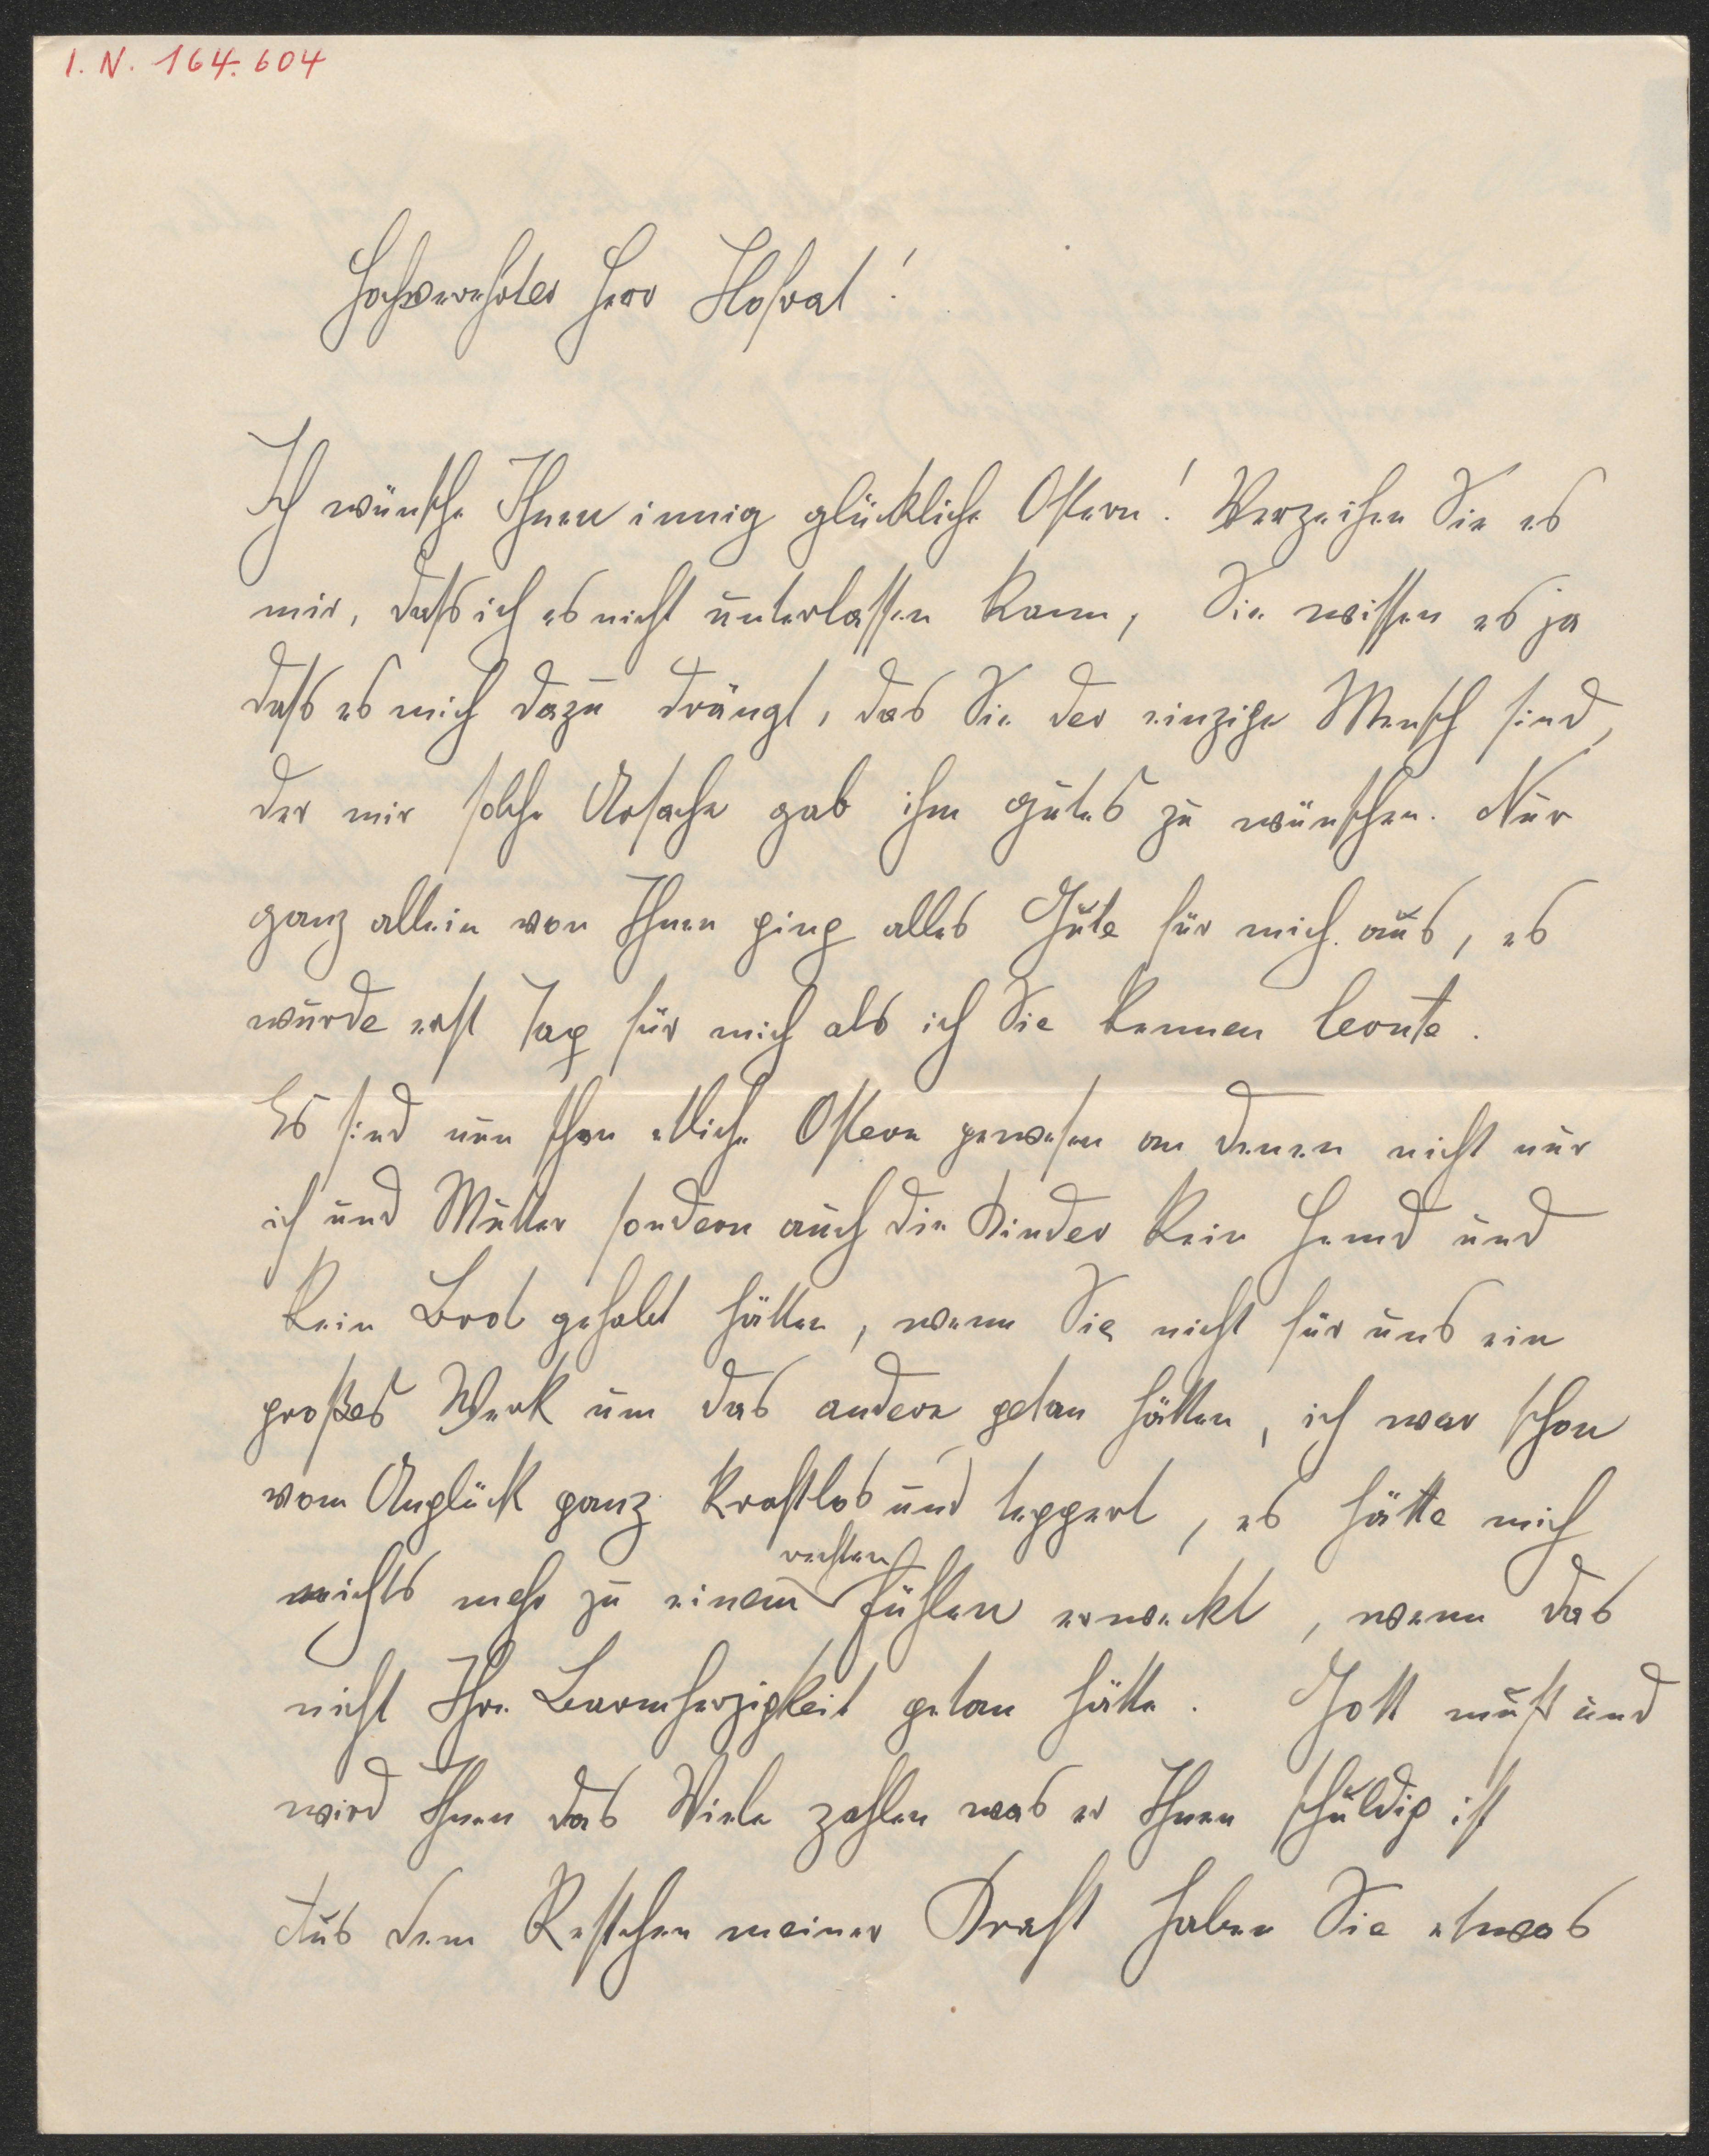 I. N. 164.604
Hochverehrter Herr Hofrat!
Ich wünsche Ihnen innig glückliche Ostern! Verzeihen Sie es
mir, dass ich es nicht unterlassen kann, Sie wissen es ja
dass es mich dazu drängt, das Sie der einzige Mensch sind,
der mir solche Ursache gab ihm gutes zu wünschen. Nur
ganz allein von Ihnen ging alles Gute für mich aus, es
wurde erst Tag für mich als ich Sie kennen lernte.
Es sind nun schon etliche Ostern gewesen an denen nicht nur
ich und Mutter sondern auch die Kinder kein Hemd und
kein Brot gehabt hätten, wenn Sie nicht für uns ein
großes Werk um das andere getan hätten, ich war schon
vom Unglück ganz kraftlos und teppert, es hätte mich
rechten
nichts mehr zu einem fühlen erweckt, wenn das
nicht Ihre Barmherzigkeit getan hätte. Gott muß und
wird Ihnen das Viele zahlen was er Ihnen schuldig ist
Aus dem Restchen meiner Kraft haben Sie etwas